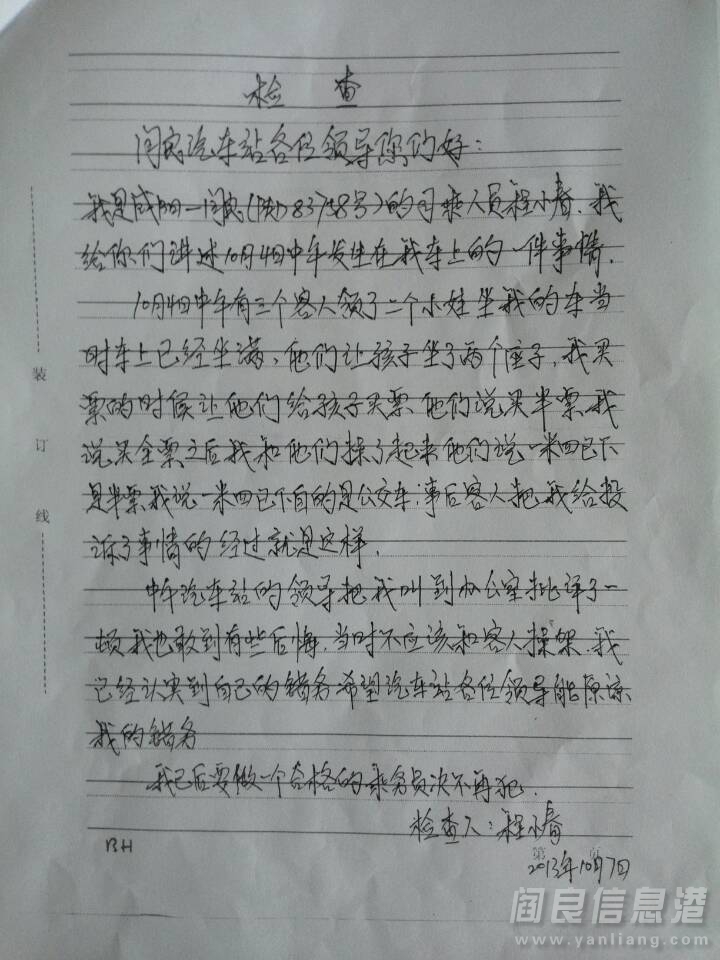 检 查
闫良汽车站各位领导你们好：
我是咸阳一闫良(陕D83758号)的司乘人员程小春.我
给你们讲述10月4日中午发生在我车上的一件事情.
10月4日中午有三个客人领了二个小娃坐我的车当
时车上已经坐满、他们让孩子坐了两个座子.我买
票的时候让他们给孩子买票.他们说买半票.我
说买全票之后我和他们操了起来他们说一米四已下
是半票.我说一米四已下的是公交车;事后客人把我给投
诉了事情的经过就是这样.
中午汽车站的领导把我叫到办公室批评了一
顿我也敢到有些后悔.当时不应该和客人操架.我
已经认实到自己的错务希望汽车站各位领导能原谅
我的错务
我已后要做一个合格的乘务员决不再犯.
检查人:程小春
第 页
2013年10月7日
BH
装
订
线
阎良信息港
www.yanliang.com